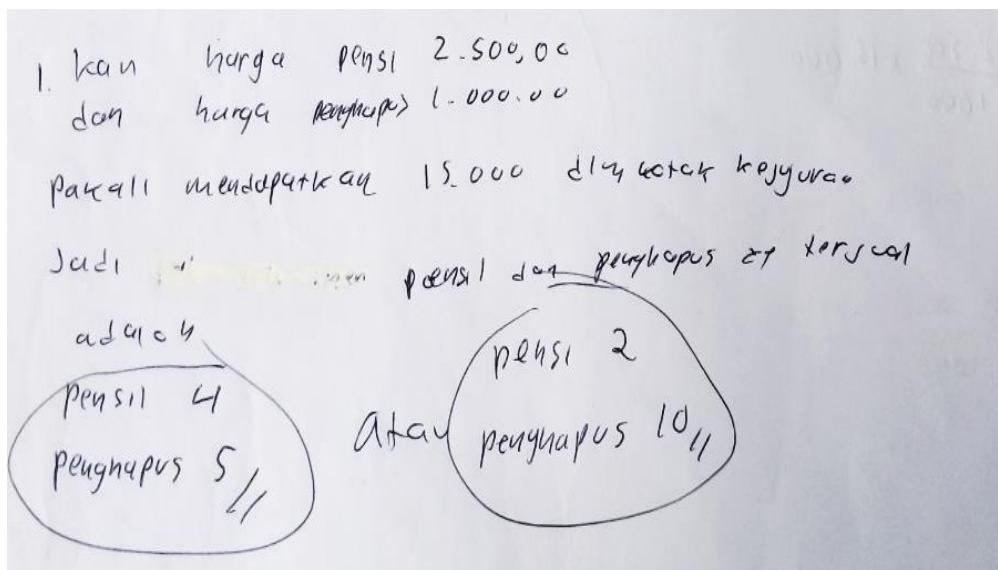 1. kan harga pensi 2.500,00
dan harga penghapus 1.000.00
Pak ali mendapatkan 15.000 dlm kotak kejujuran
Jadi pensil dan penghapus yg terjual
adalah
pensil 4
penghapus 5 //
Atau
pensi 2
penghapus 10 //